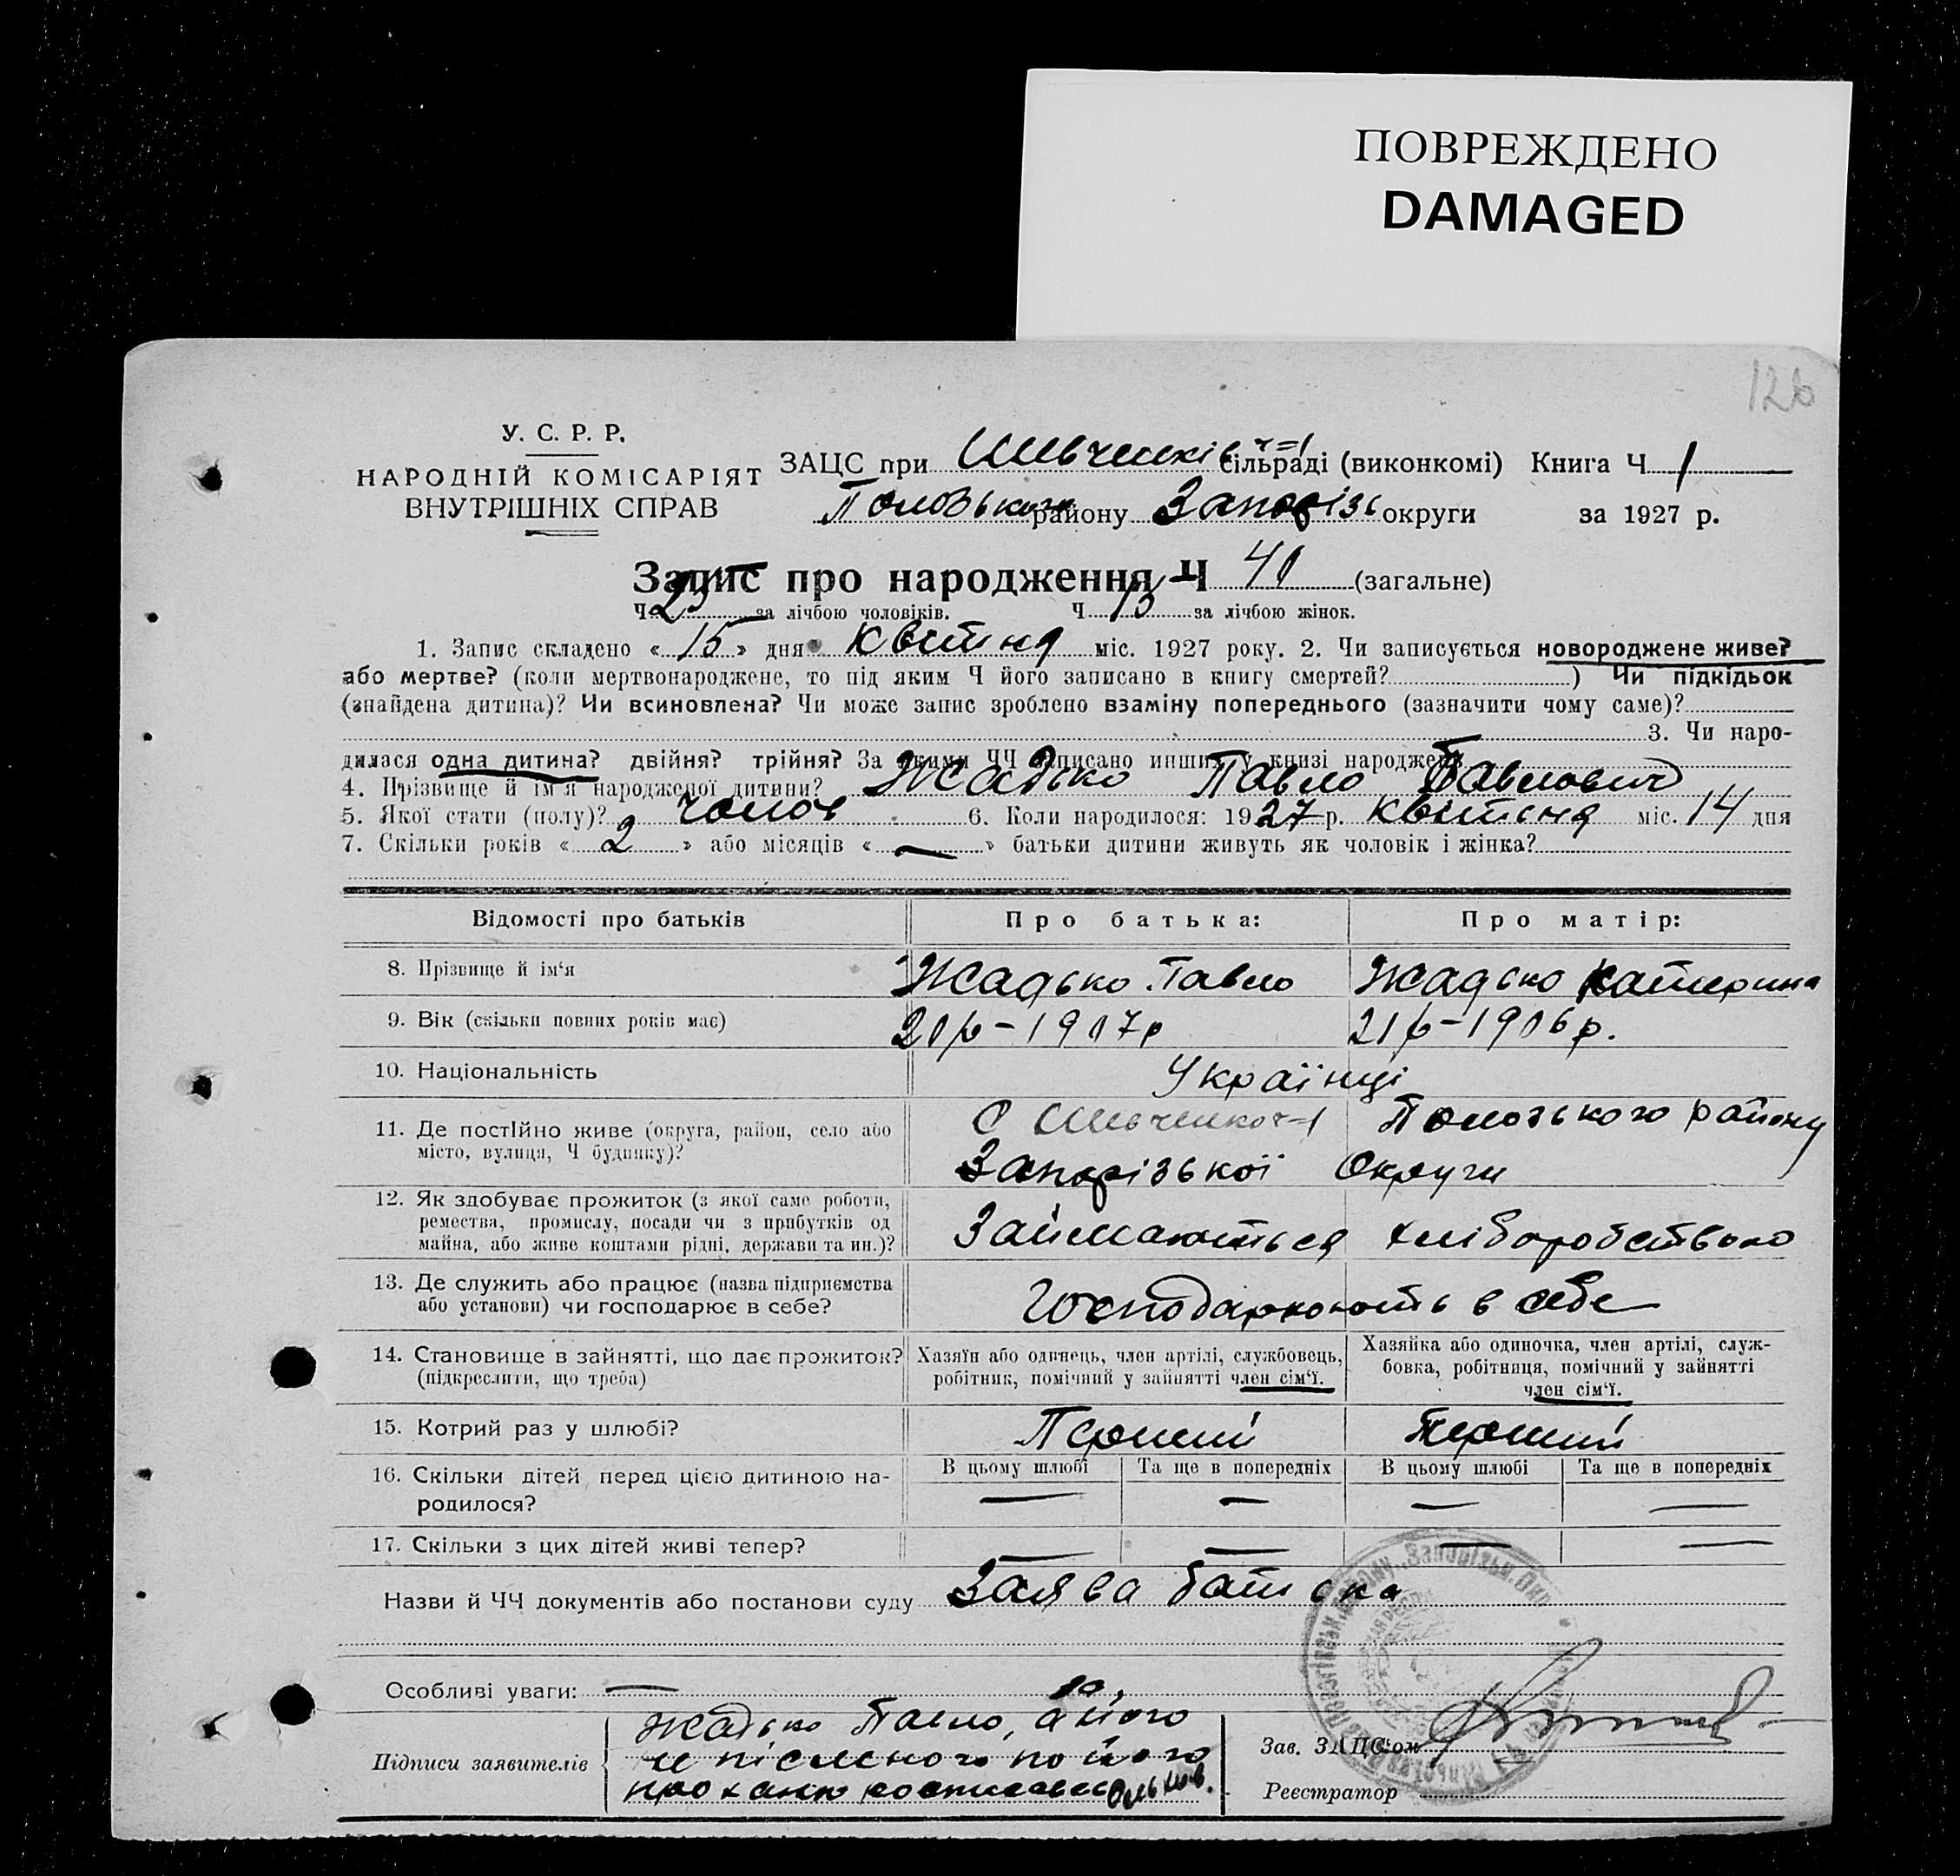 ПОВРЕЖДЕНО
DAMAGED
126
У. С. Р. Р.
НАРОДНІЙ КОМІСАРІЯТ
ВНУТРІШНІХ СПРАВ
ЗАЦС при Шевченків ч=1 сільраді (виконкомі) Книга Ч 1
Пологського району Запоріз округи за 1927 р.
Запис про народження Ч 40 (загальне)
Ч 25 за лічбою чоловіків. Ч 15 за лічбою жінок.
1. Запис складено « 15 » дня квітня міс. 1927 року. 2. Чи записується новороджене живе?
або мертве? (коли мертвонароджене, то під яким Ч його записано в книгу смертей? ) Чи підкідьок
(знайдена дитина)? Чи всиновлена? Чи може запис зроблено взаміну попереднього (зазначити чому саме)?
3. Чи наро-
дилася одна дитина? двійня? трійня? За якими ЧЧ записано инших у книзі народжень
4. Прізвище й ім'я народженої дитини? Жадько Павло Павлович
5. Якої стати (полу)? чолов 6. Коли народилося: 1927 р. квітня міс. 14 дня
7. Скільки років « 2 » або місяців « — » батьки дитини живуть як чоловік і жінка?
Відомості про батьків Про батька: Про матір:
8. Прізвище й ім'я Жадько Павло Жадько Катерина
9. Вік (скільки повних років має) 20 р – 1907 р 21 р – 1906 р.
10. Національність Українці
11. Де постійно живе (округа, район, село або С Шевченко ч=1 Пологського району
місто, вулиця, Ч будинку)? Запорізької Округи
12. Як здобуває прожиток (з якої саме роботи,
ремества, промислу, посади чи з прибутків од
майна, або живе коштами рідні, держави та ин.)? Займаються хліборобством
13. Де служить або працює (назва підприємства
або установи) чи господарює в себе? Господарюють в себе
14. Становище в зайнятті, що дає прожиток? Хазяїн або одинець, член артілі, службовець, Хазяйка або одиночка, член артілі, служ-
(підкреслити, що треба) робітник, помічний у зайнятті член сім'ї. бовка, робітниця, помічний у зайнятті
член сім'ї.
15. Котрий раз у шлюбі? Перший Перший
16. Скільки дітей перед цією дитиною на- В цьому шлюбі Та ще в попередніх В цьому шлюбі Та ще в попередніх
родилося? — — — —
17. Скільки з цих дітей живі тепер? — — — —
Назви й ЧЧ документів або постанови суду Заява батька
Особливі уваги: —
Жадько Павло, а його
Підписи заявителів не письменого по його
проханю росписавсь
Зав. ЗАЦС'ом
Реєстратор